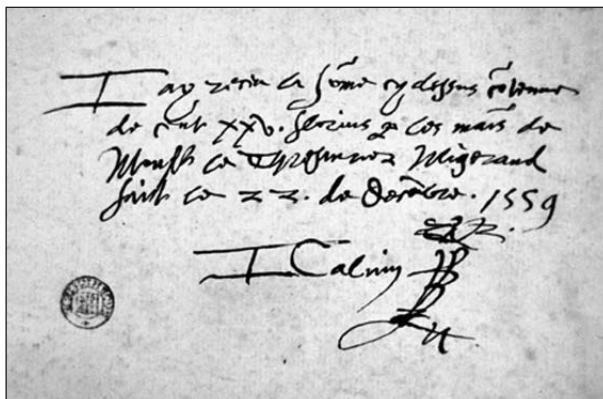 I ay receu la sōme cy dessus cōtenue
de cent xxv. florins p les mais de
Monsr le Thresorier Migerand
faict ce 22. de decēbre. 1559
I Calvin